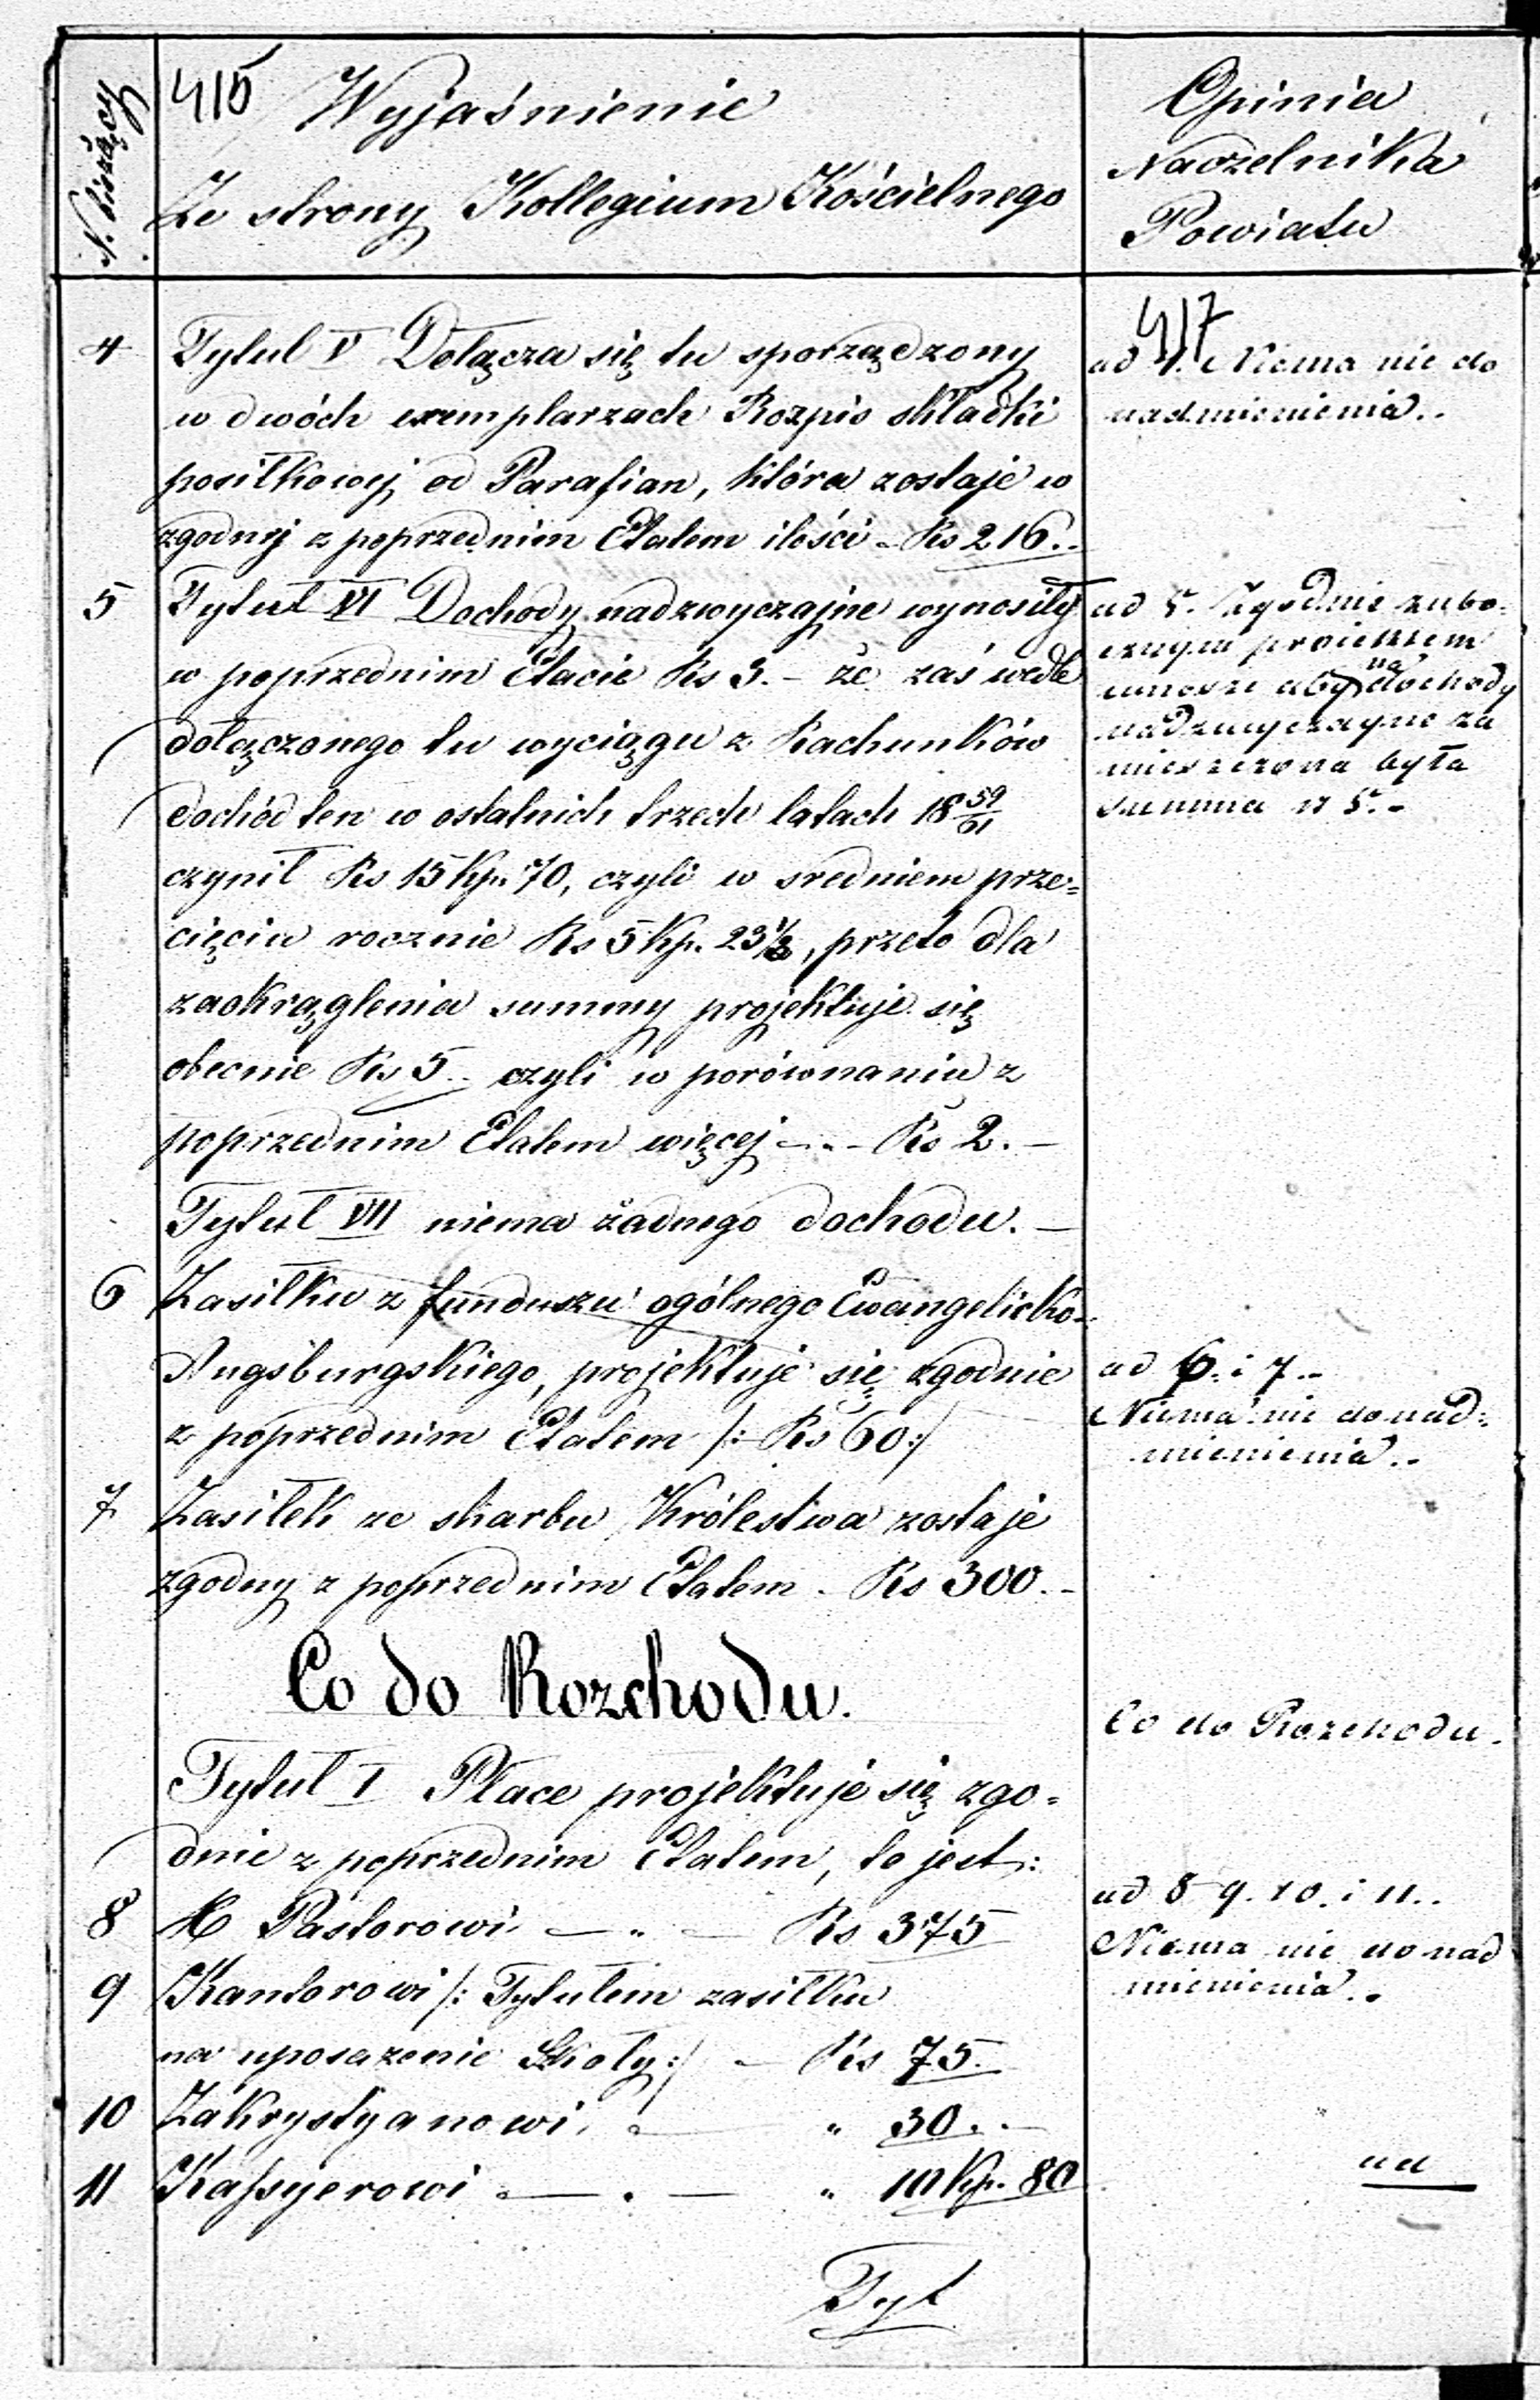 N. bieżący
415
Wyjaśnienie
Ze strony Kollegium Kościelnego
Opinia
Naczelnika
Powiatu
4 Tytuł V Dołącza się tu sporządzony
w dwóch exemplarzach Rozpis składki
posiłkowej od Parafian, która zostaje w
zgodnej z poprzednim Etatem ilości - Rs 216..
5 Tytuł VI Dochody nadzwyczajne wynosiły
w poprzednim Etacie Rs 3.- że zaś wedle
dołączonego tu wyciągu z Rachunków
dochód ten w ostatnich trzech latach 18 59/61
czynił Rs 15 Kp. 70, czyli w sredniem prze=
cięciu rocznie Rs 5 Kp. 23 1/3, przeto dla
zaokrąglenia summy projektuje się
obecnie Rs 5.. czyli w porównaniu z
poprzednim Etatem więcej -..- Rs 2.-
Tytuł VII niema żadnego dochodu.-
6 Zasiłku z funduszu ogólnego Ewangelicko-
Augsburgskiego, projektuje się zgodnie
z poprzednim Etatem /: Rs 60:/
7 Zasiłek ze skarbu Królestwa zostaje
zgodny z poprzednim Etatem. Rs 300.-
Co do Rozchodu.
Tytuł I Płace projektuje się zgo=
dnie z poprzednim Etatem, to jest:
8 X Pastorowi — „ — Rs 375
9 Kantorowi /: Tytułem zasiłku
na uposazenie Szkoły:/ — Rs 75.
10 Zakrystyanowi. — „ 30..—
11 Kassyerowi — . — „ 10 Kp. 80
Tyt
417
ad 4. Niema nic do
nadmienienia..
ad 5. Zgodnie z ubo=
cznym proiektem
wnoszę aby na dochody
nadzwyczayne za
mieszczona była
summa rs 5.-
ad 6. i 7..
Niema nic do nad=
mienienia..
Co do Rozchodu.
ad 8 9. 10. i 11..
Niema nic do nad
mienienia..
ad